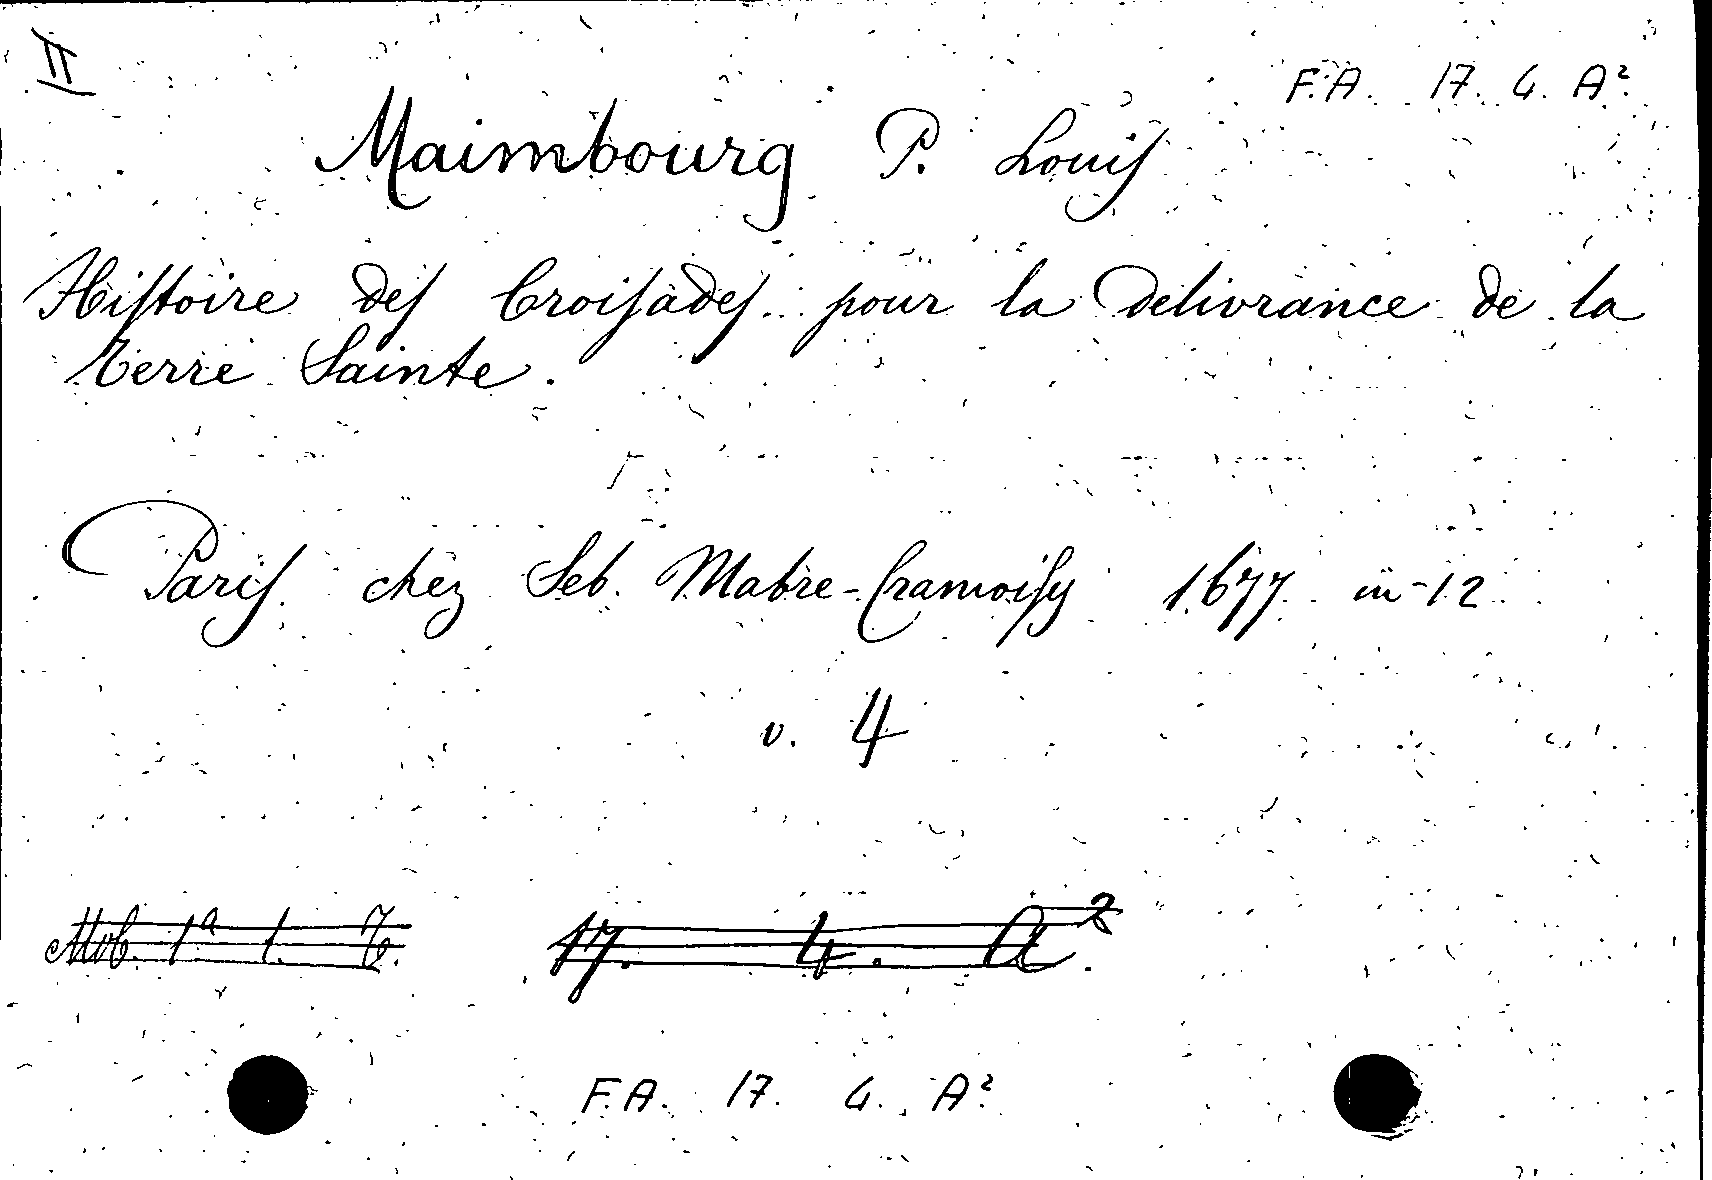 II
F.A. 17. 4. A²
Maimbourg P. Louis
Histoire des Croisades pour la delivrance de la
terre Sainte.
Paris chez Seb. Mabre-Cramoisy 1677 in-12
v. 4
Mob. 1ª 1. 7. 17. 4. A²
F.A. 17. 4. A²